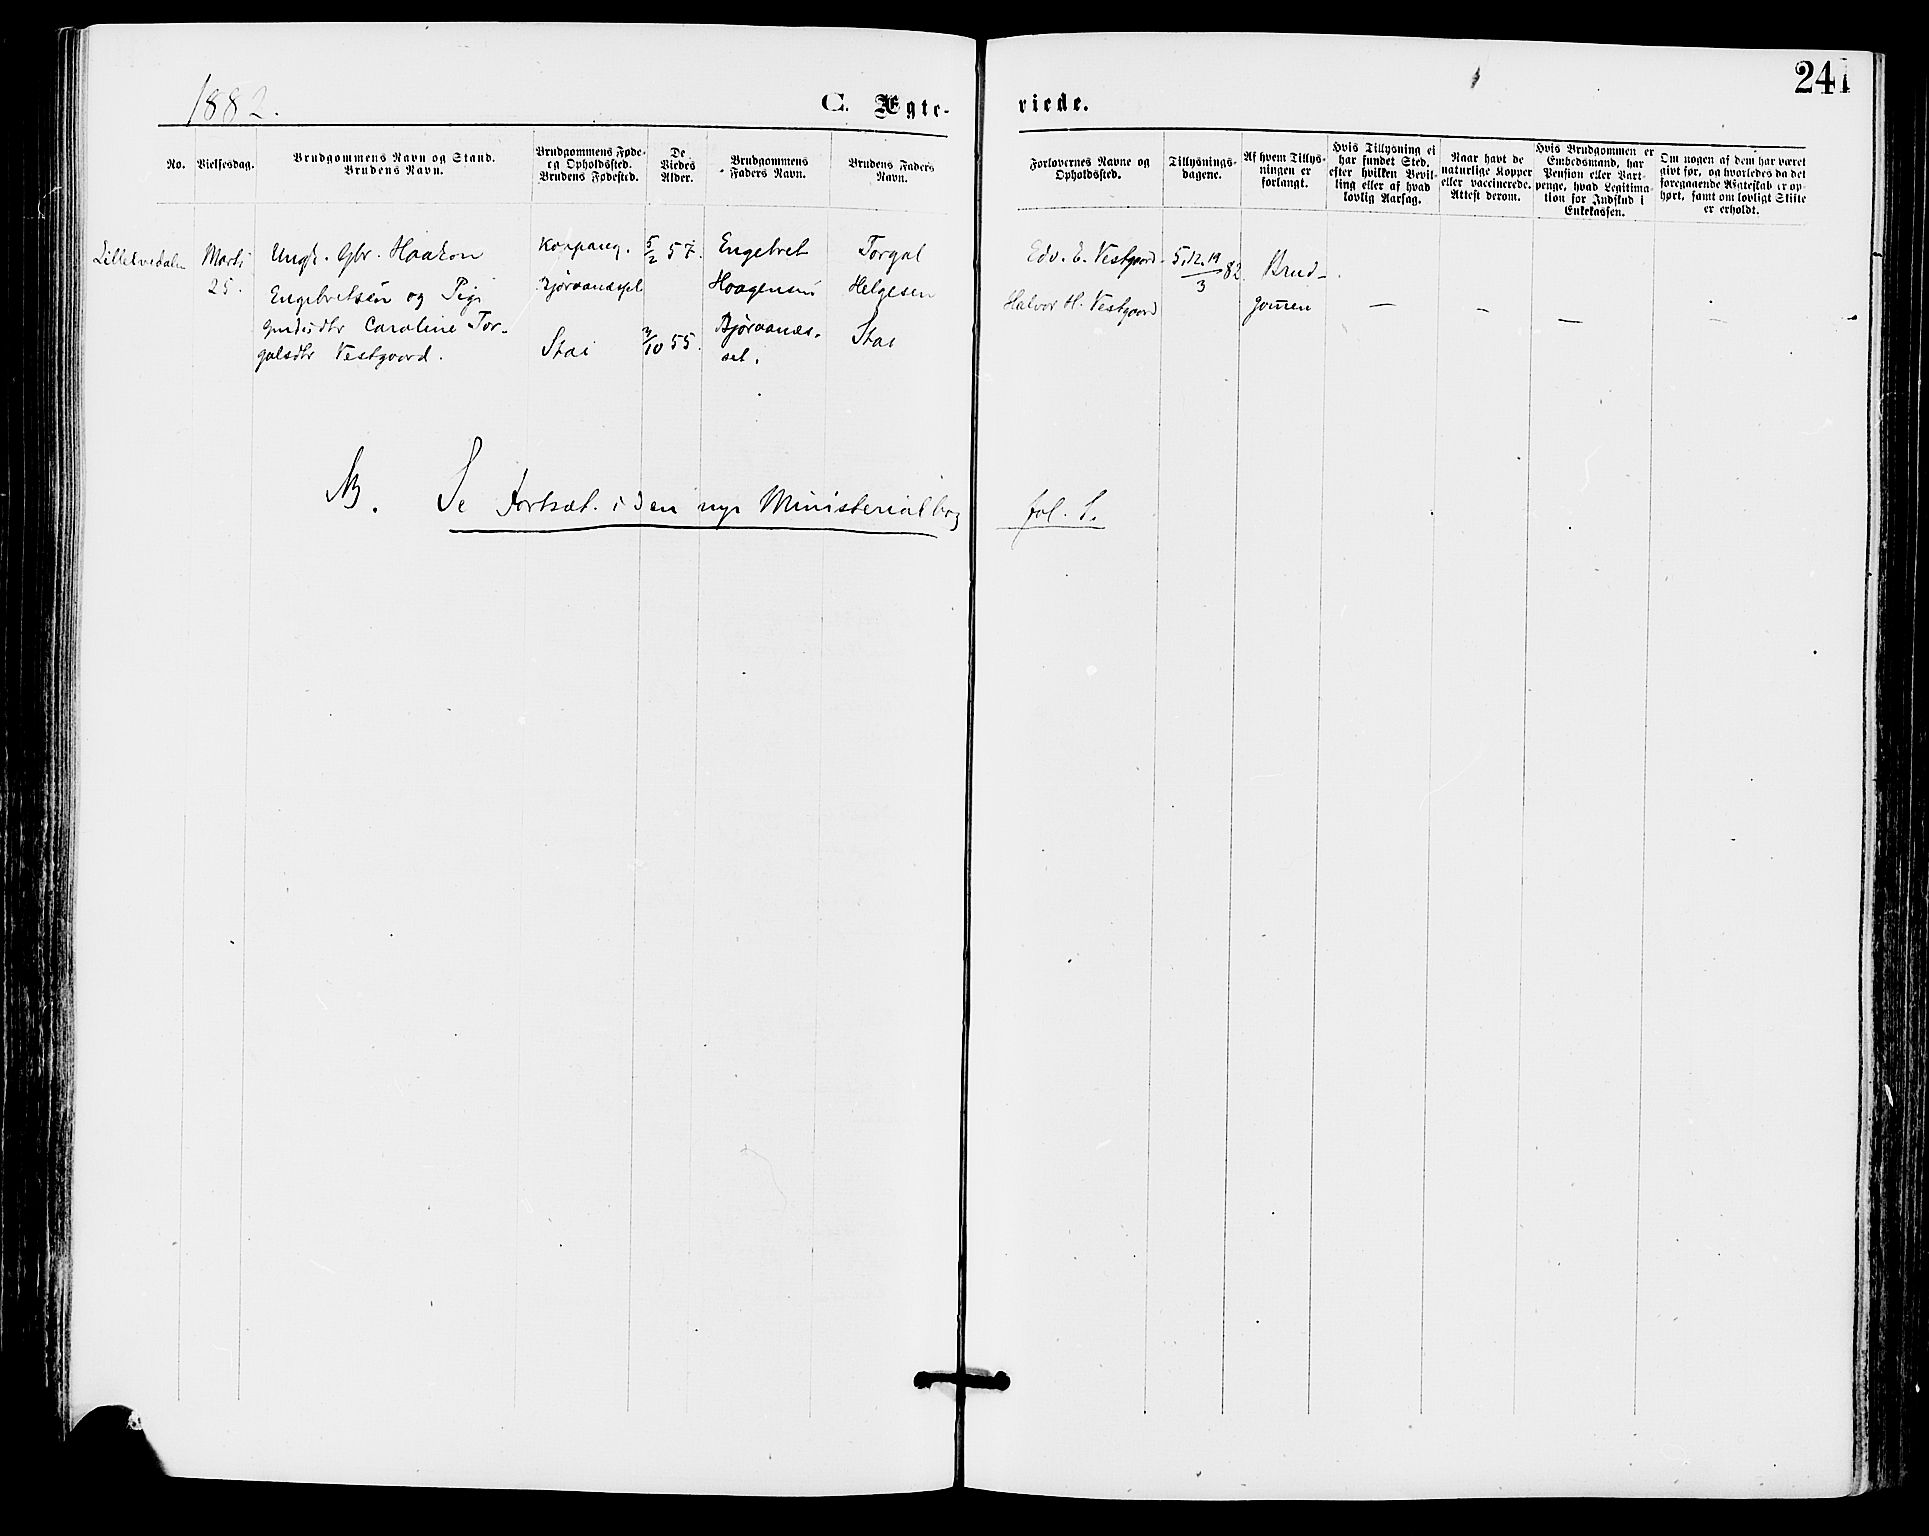 1882.
C. Ægte-
viede.
241
No.
Vielsesdag.
Brudgommens Navn og Stand.
Brudens Navn.
Brudgommens Føde-
og Opholdssted.
Brudens Fødested.
De
Viedes
Alder.
Brudgommens
Faders Navn.
Brudens Faders
Navn.
Forlovernes Navne og
Opholdssted.
Tillysnings-
dagene.
Af hvem Tillys-
ningen er
forlangt.
Hvis Tillysning ei
har fundet Sted,
efter hvilken Bevil-
ling eller af hvad
lovlig Aarsag.
Naar havt de
naturlige Kopper
eller vaccinerede.
Attest derom.
Hvis Brudgommen er
Embedsmand, har
Pension eller Vart-
penge, hvad Legitima-
tion for Indskud i
Enkekassen.
Om nogen af dem har været
givt før, og hvorledes da det
foregaaende Ægteskab er op-
hørt, samt om lovligt Skifte
er erholdt.
Lilleelvedalen
Marts
25.
Ungk. Gbr. Haakon
Engebretsen og Pige
Caroline Tor-
galsdtr Vestgaard.
Koppang.
Stai
5/2 57.
3/10 55.
Engebret
Haagensen
Bjøraanes-
set.
Torgal
Helgesen
Stai
Edv. E. Vestgaard.
Halvor H. Vestgaard
5, 12, 19
3 82
Brud-
gomen
—
—
—
—
NB. Se Fortsæt. i den nye Ministerialbog
fol. 1.